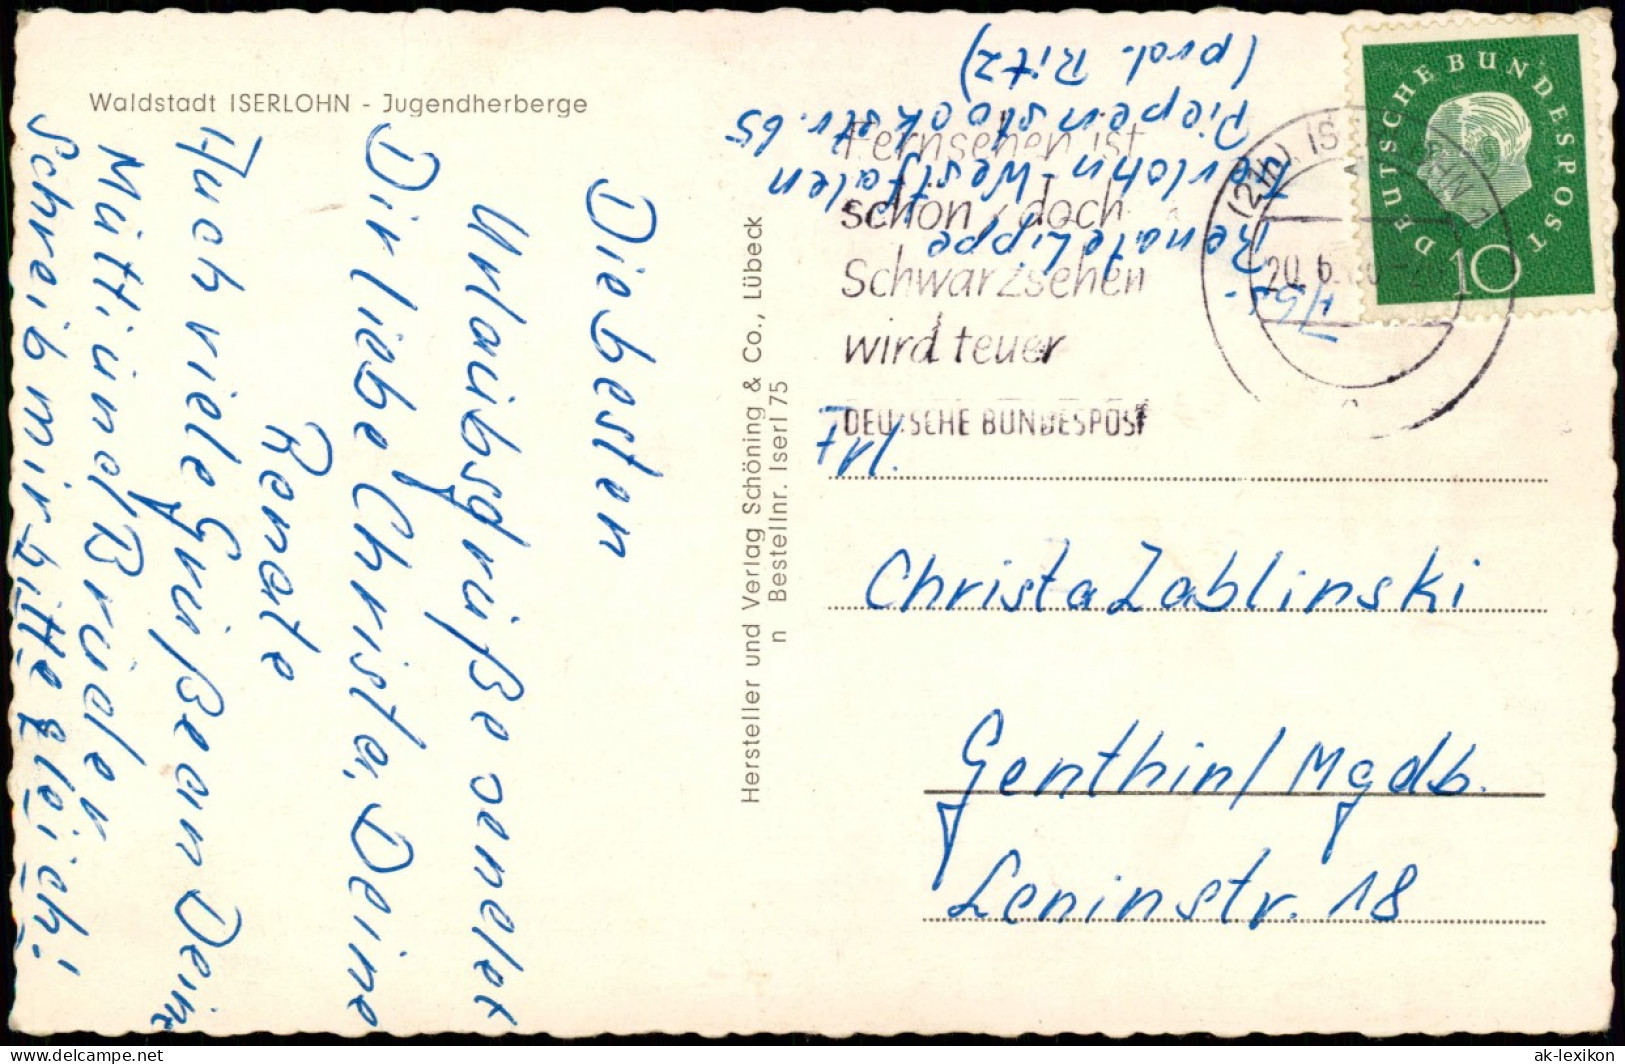 Waldstadt ISERLOHN - Jugendherberge
Die besten
Urlaubsgrüße sendet
Dir liebe Christa, Deine
Renate
Auch viele Grüße an Deine
Mutti und Brüder
Schreib mir bitte gleich!
Hersteller und Verlag Schöning & Co., Lübeck
n Bestellnr. Iserl 75
Abs.
Renate Lippe
Iserlohn-Westfalen
Piepenstockstr. 65
Ritz)
Fernsehen ist
schön, doch
Schwarzsehen
wird teuer
DEUTSCHE BUNDESPOST
(21b) ISERLOHN 1
20.6.
DEUTSCHE BUNDESPOST
10
Frl.
Christa Zablinski
Genthin/Mgdb.
Leninstr. 18
ak-lexikon.de